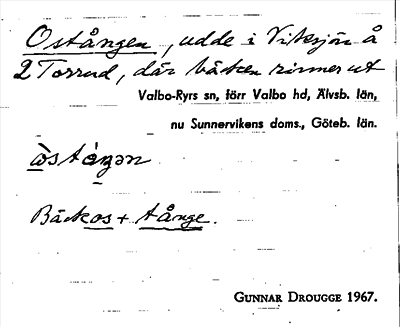 Ostången, udde i Vitesjön å
2 Torrud, där bäcken rinner ut
Valbo-Ryrs sn, förr Valbo hd, Älvsb. län,
nu Sunnervikens doms., Göteb. län.
Bäckos + tånge.
GUNNAR DROUGGE 1967.